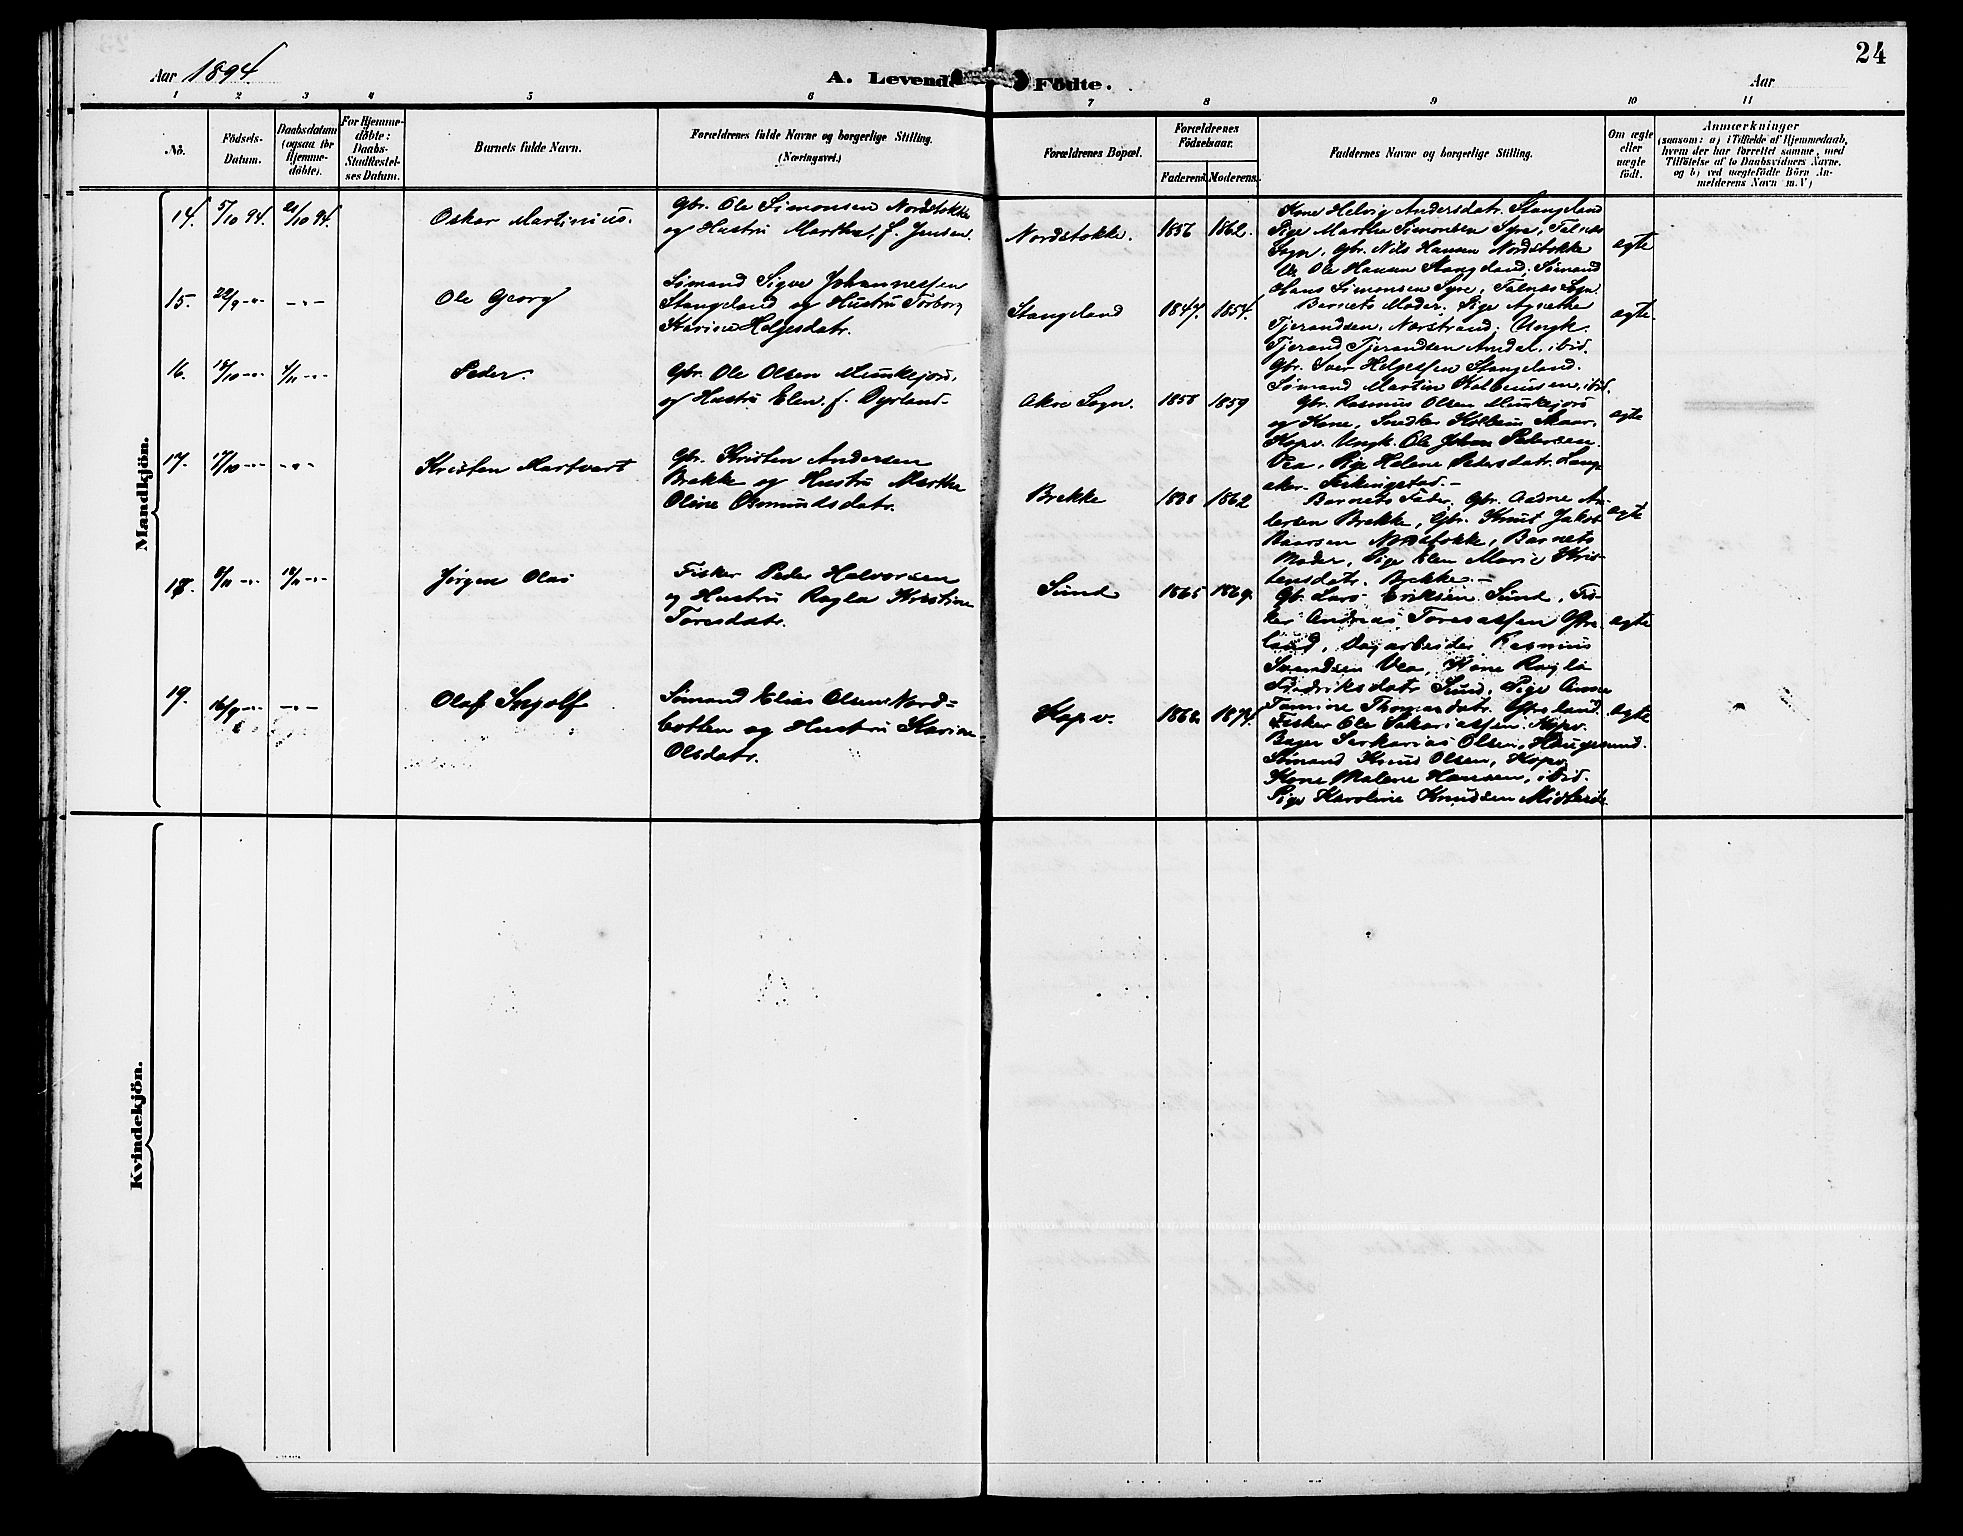 24
Aar 1894.
A. Levende Födte.
Aar
1 2 3 4 5 6 7 8 9 10 11
No.
Födsels-Datum.
Daabsdatum (ogsaa for Hjemmedöbte).
For Hjemmedöbte: Daabs-Stadfæstelses Datum.
Barnets fulde Navn.
Forældrenes fulde Navne og borgerlige Stilling.
(Næringsvei.)
Forældrenes Bopæl.
Forældrenes Födselsaar.
Faderens. Moderens.
Faddernes Navne og borgerlige Stilling.
Om ægte eller uægte födt.
Anmærkninger
(saasom: a) i Tilfælde af Hjemmedaab,
hvem der har forrettet samme, med
Tilföielse af to Daabsvidners Navne,
og b) ved uægtefödte Börn Anmelderens Navn m. V.)
Mandkjön.
14. 5/10 94. 21/10 94. Oskar Martinius.
Gbr. Ole Simonsen Nordstokke
og Hustru Martha, f. Jensen.
Nordstokke. 1856 1862.
Kone Helvig Andersdatr. Stangeland
Pige Martha Simonsen Syre, Falnes
Sogn, Gbr. Nils Hansen Nordstokke
Ole Hansen Stangeland, Sømand
Hans Simonsen Syre, Falnes Sogn.
ægte
15. 22/9 -"- -"- Ole Georg
Sømand Sigve Johannessen
Stangeland og Hustru Torborg
Karine Helgesdatr.
Stangeland 1847. 1854.
Barnets Moder. Pige Agnethe
Tjerandsen, Nærstrand; Ungk.
Tjerand Tjerandsen Amdal, ibid.
Gbr. Iver Helgesen Stangeland.
Sømand Martin Kolbeinsen, ibid.
ægte.
16. 18/10 -"- 4/11 -"- Peder.
Gbr. Ole Olsen Munkejord,
og Hustru Elen, f. Dyrland.
Akre Sogn. 1858 1859
Gbr. Rasmus Olsen Munkejord
og Kone, Snedker Kolbein Skaar,
Kopv. Ungk. Ole Johan Pedersen
Vea, Pige Helene Pedersdatr. Langaker. Skudeneshed.
ægte
17. 17/10 -"- -"- Kristen Martvart
Gbr. Kristen Andersen
Brekke og Hustru Martha
Oline Osmundsdatr.
Brekke 1858 1862
Barnets Fader, Gbr. Aadne Andersen Brekke, Gbr. Knut Jakob
Baarsen Nordstokke, Barnets
Moder, Pige Elen Marie Kristensdatr. Brekke.
ægte
18. 9/11 -"- 18/11 -"- Jørgen Olai
Fisker Peder Halvorsen
og Hustru Ragla Kristine
Toresdatr.
Sund 1865 1869.
Gb. Lars Eriksen Sund, Fisker Andreas Toresassen Ytreland, Dagarbeider Rasmus
Svendsen Vea, Kone Ragla
Fredriksdatr Sund, Pige Anne
Tomine Thomasdatr. Ytreland.
ægte
19. 16/9 -"- -"- Olaf Ingolf
Sømand Elias Olsen Nordbotten og Hustru Karine
Olsdatr.
Kopv. 1868. 1874.
Fisker Ole Sakariassen Kopv.
Bager Serkarias Olsen, Haugesund.
Sømand Knud Olsen, Kopv.
Kone Malene Hansen, ibid.
Pige Karoline Knudsen
ægte
Kvindekjön.